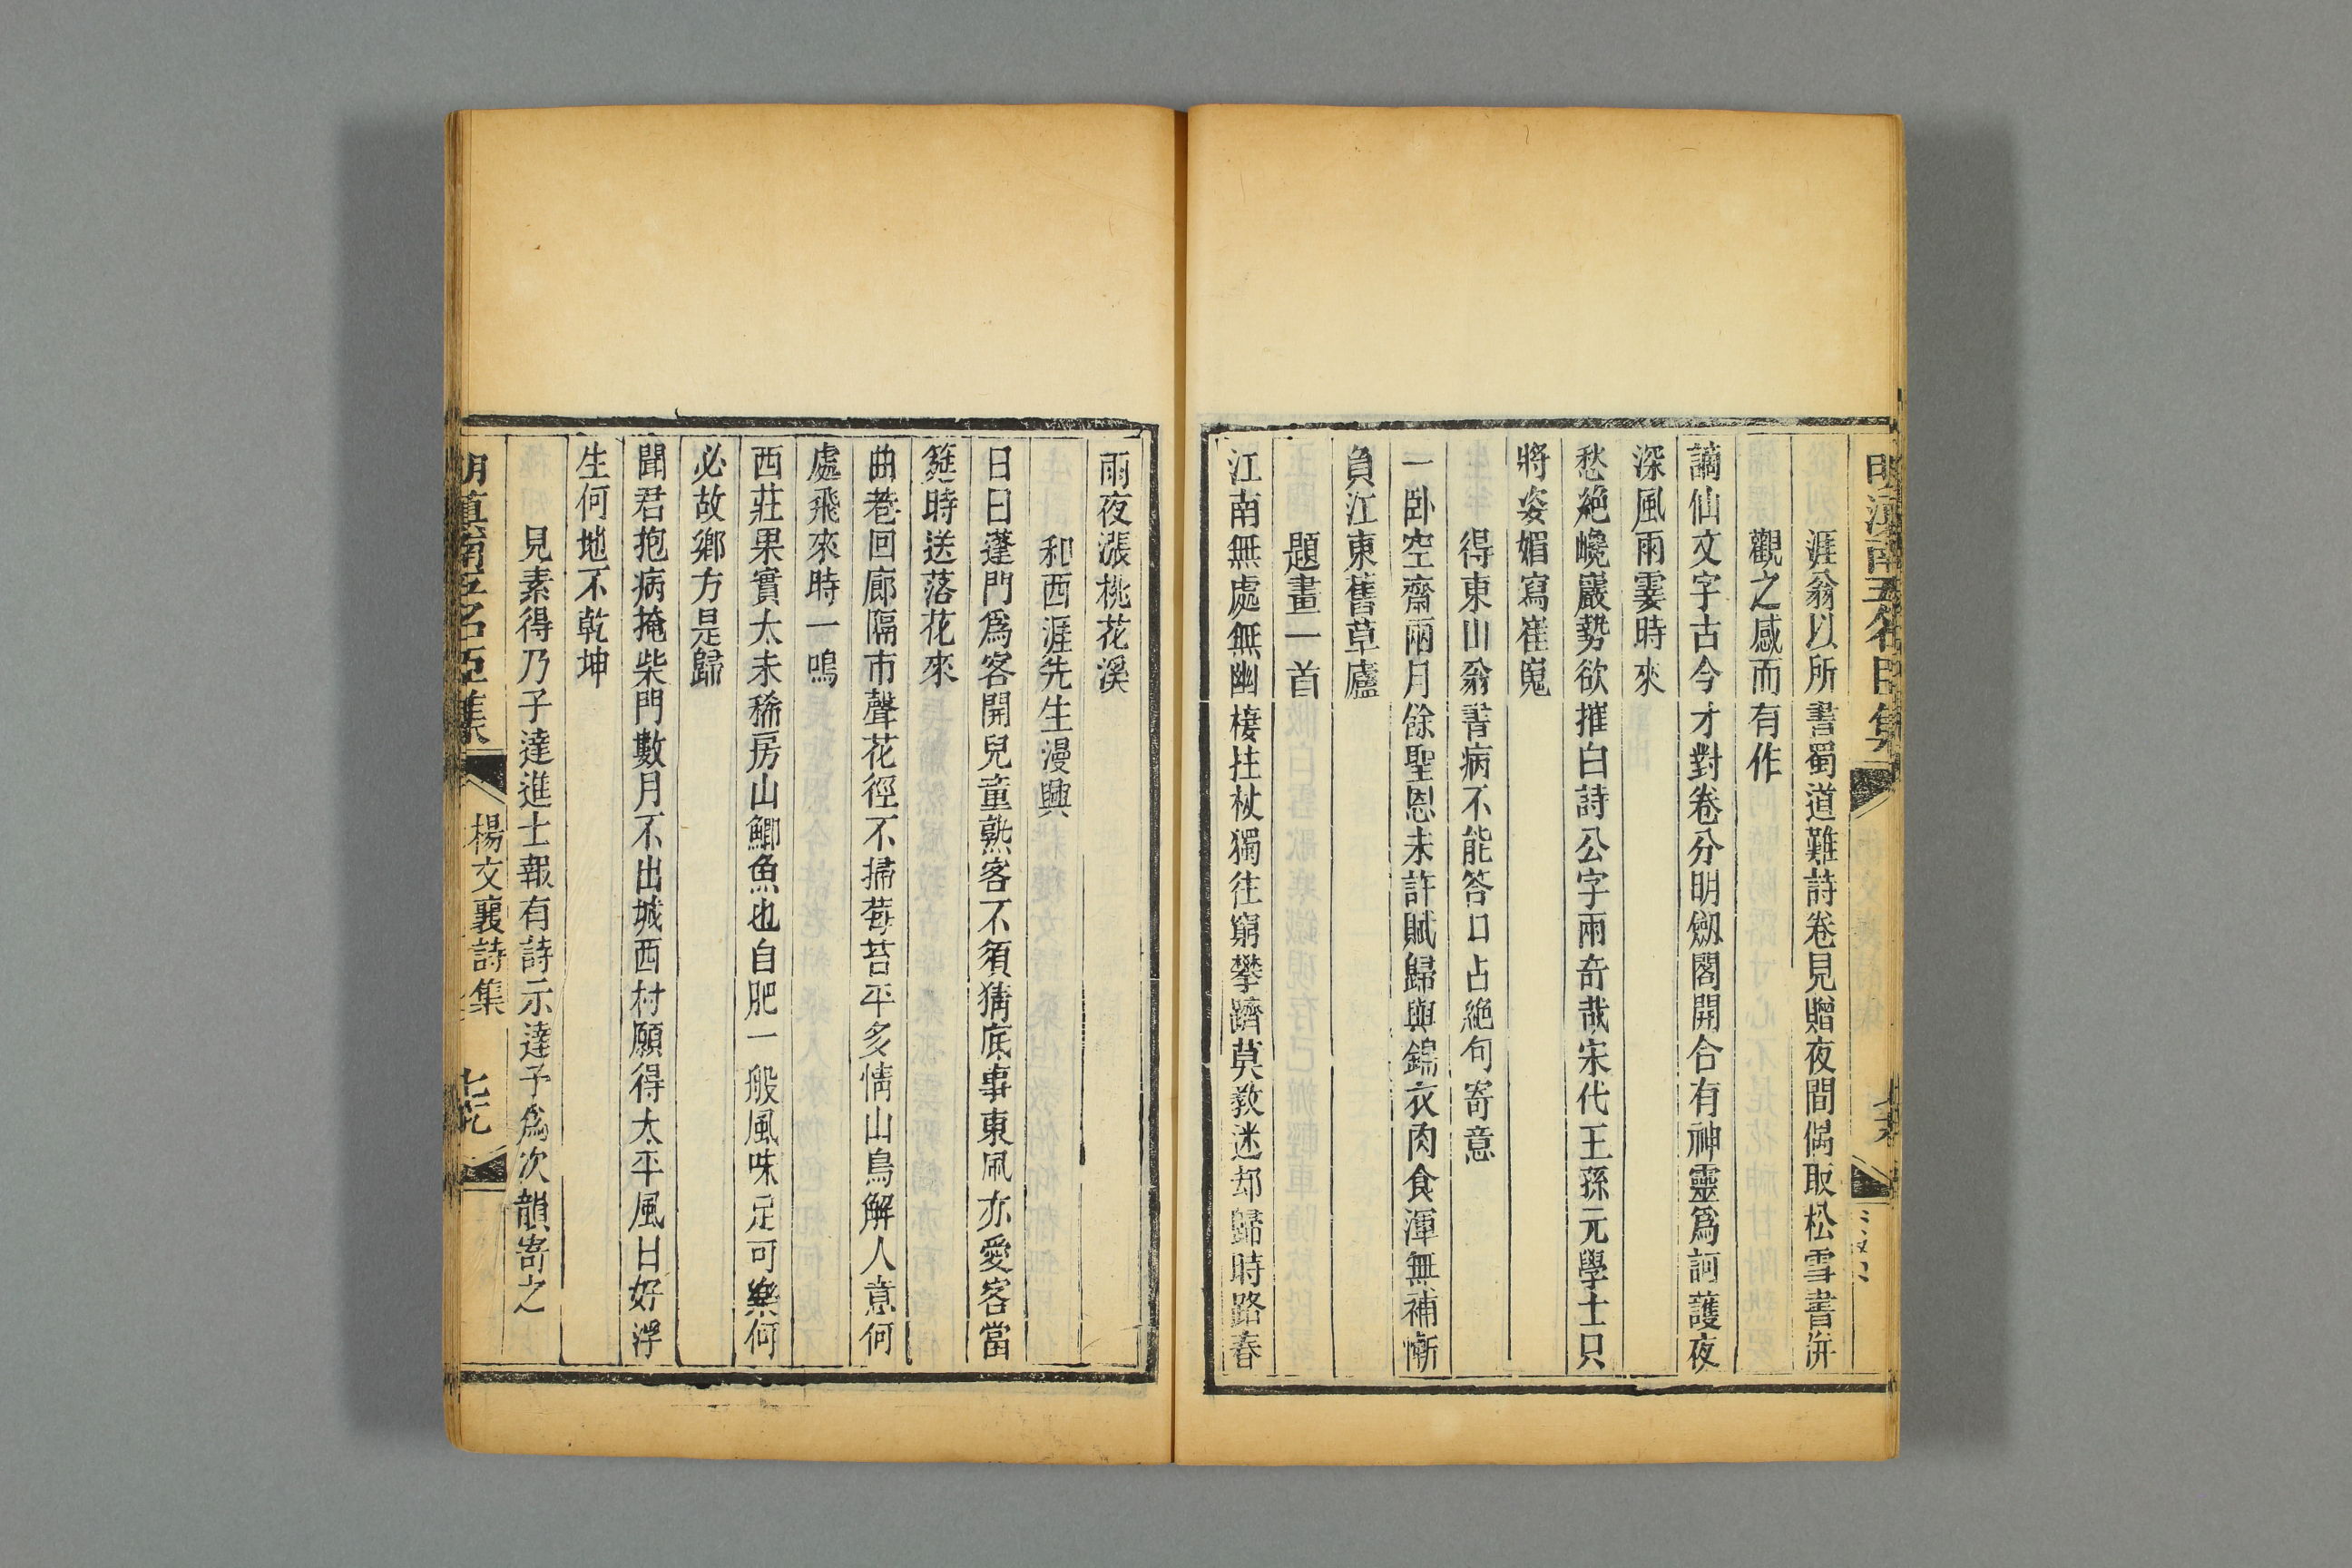 涯翁以所書蜀道難詩卷見贈夜間偶取松雪書併
觀之感而有作
謫仙文字古今才對卷分明劔閣開合有神靈爲訶護夜
深風雨霎時來
愁絶巉巖勢欲摧白詩公字兩奇哉宋代王孫元學士只
將姿媚寫崔嵬
得東山翁書病不能答口占絶句寄意
一卧空齋兩月餘聖恩未許賦歸與錦衣肉食渾無補慚
負江東舊草廬
題畫一首
江南無處無幽棲拄杖獨往窮攀躋莫教迷却歸時路春
雨夜漲桃花溪
和西涯先生漫興
日日蓬門爲客開兒童熟客不須猜底事東風亦愛客當
筵時送落花來
曲巷回廊隔市聲花徑不掃莓苔平多情山鳥解人意何
處飛來時一鳴
西莊果實太未稀房山鯽魚也自肥一般風味足可樂何
必故鄉方是歸
聞君抱病掩柴門數月不出城西村願得太平風日好浮
生何地不乾坤
見素得乃子達進士報有詩示達予爲次韻寄之
楊文襄詩集